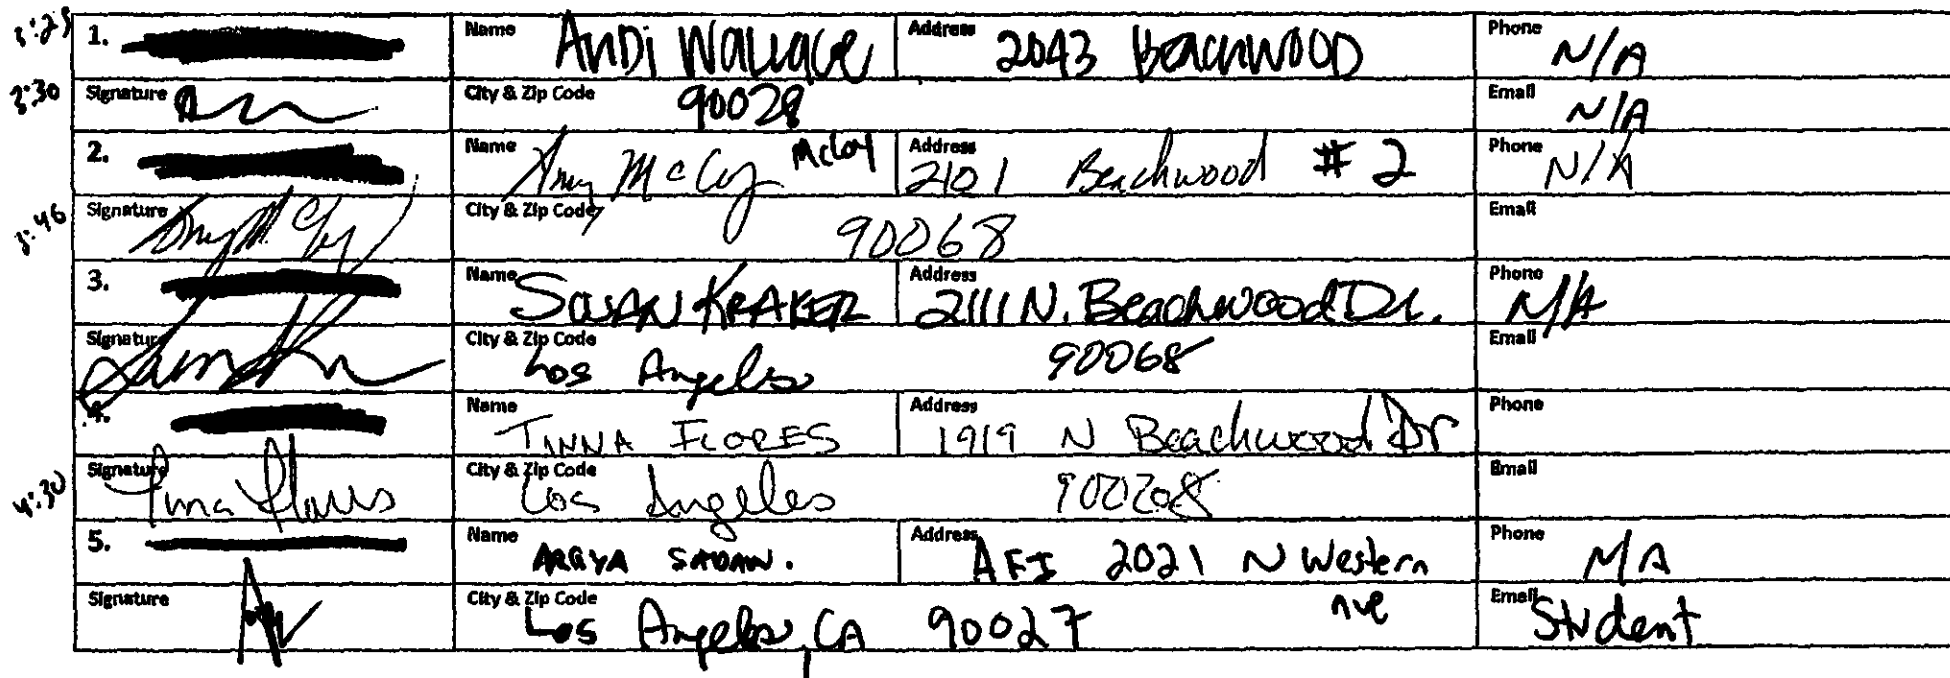 3:25 1. Name ANDi WALLACE Address 2043 BEACHWOOD Phone N/A
3:30 Signature City & Zip Code 90028 Email N/A
2. Name Amy McCoy McCoy Address 2101 Beachwood # 2 Phone N/A
3:46 Signature Amy McCoy City & Zip Code 90068 Email
3. Name SUSAN KRAKER Address 2111 N. Beachwood Dr. Phone N/A
Signature City & Zip Code Los Angeles 90068 Email
4. Name TINNA FLORES Address 1919 N Beachwood Dr Phone
4:30 Signature Tinna Flores City & Zip Code Los Angeles Email
5. Name Address AFI 2021 N Western Ave Phone N/A
Signature City & Zip Code Los Angeles, CA 90027 Email Student